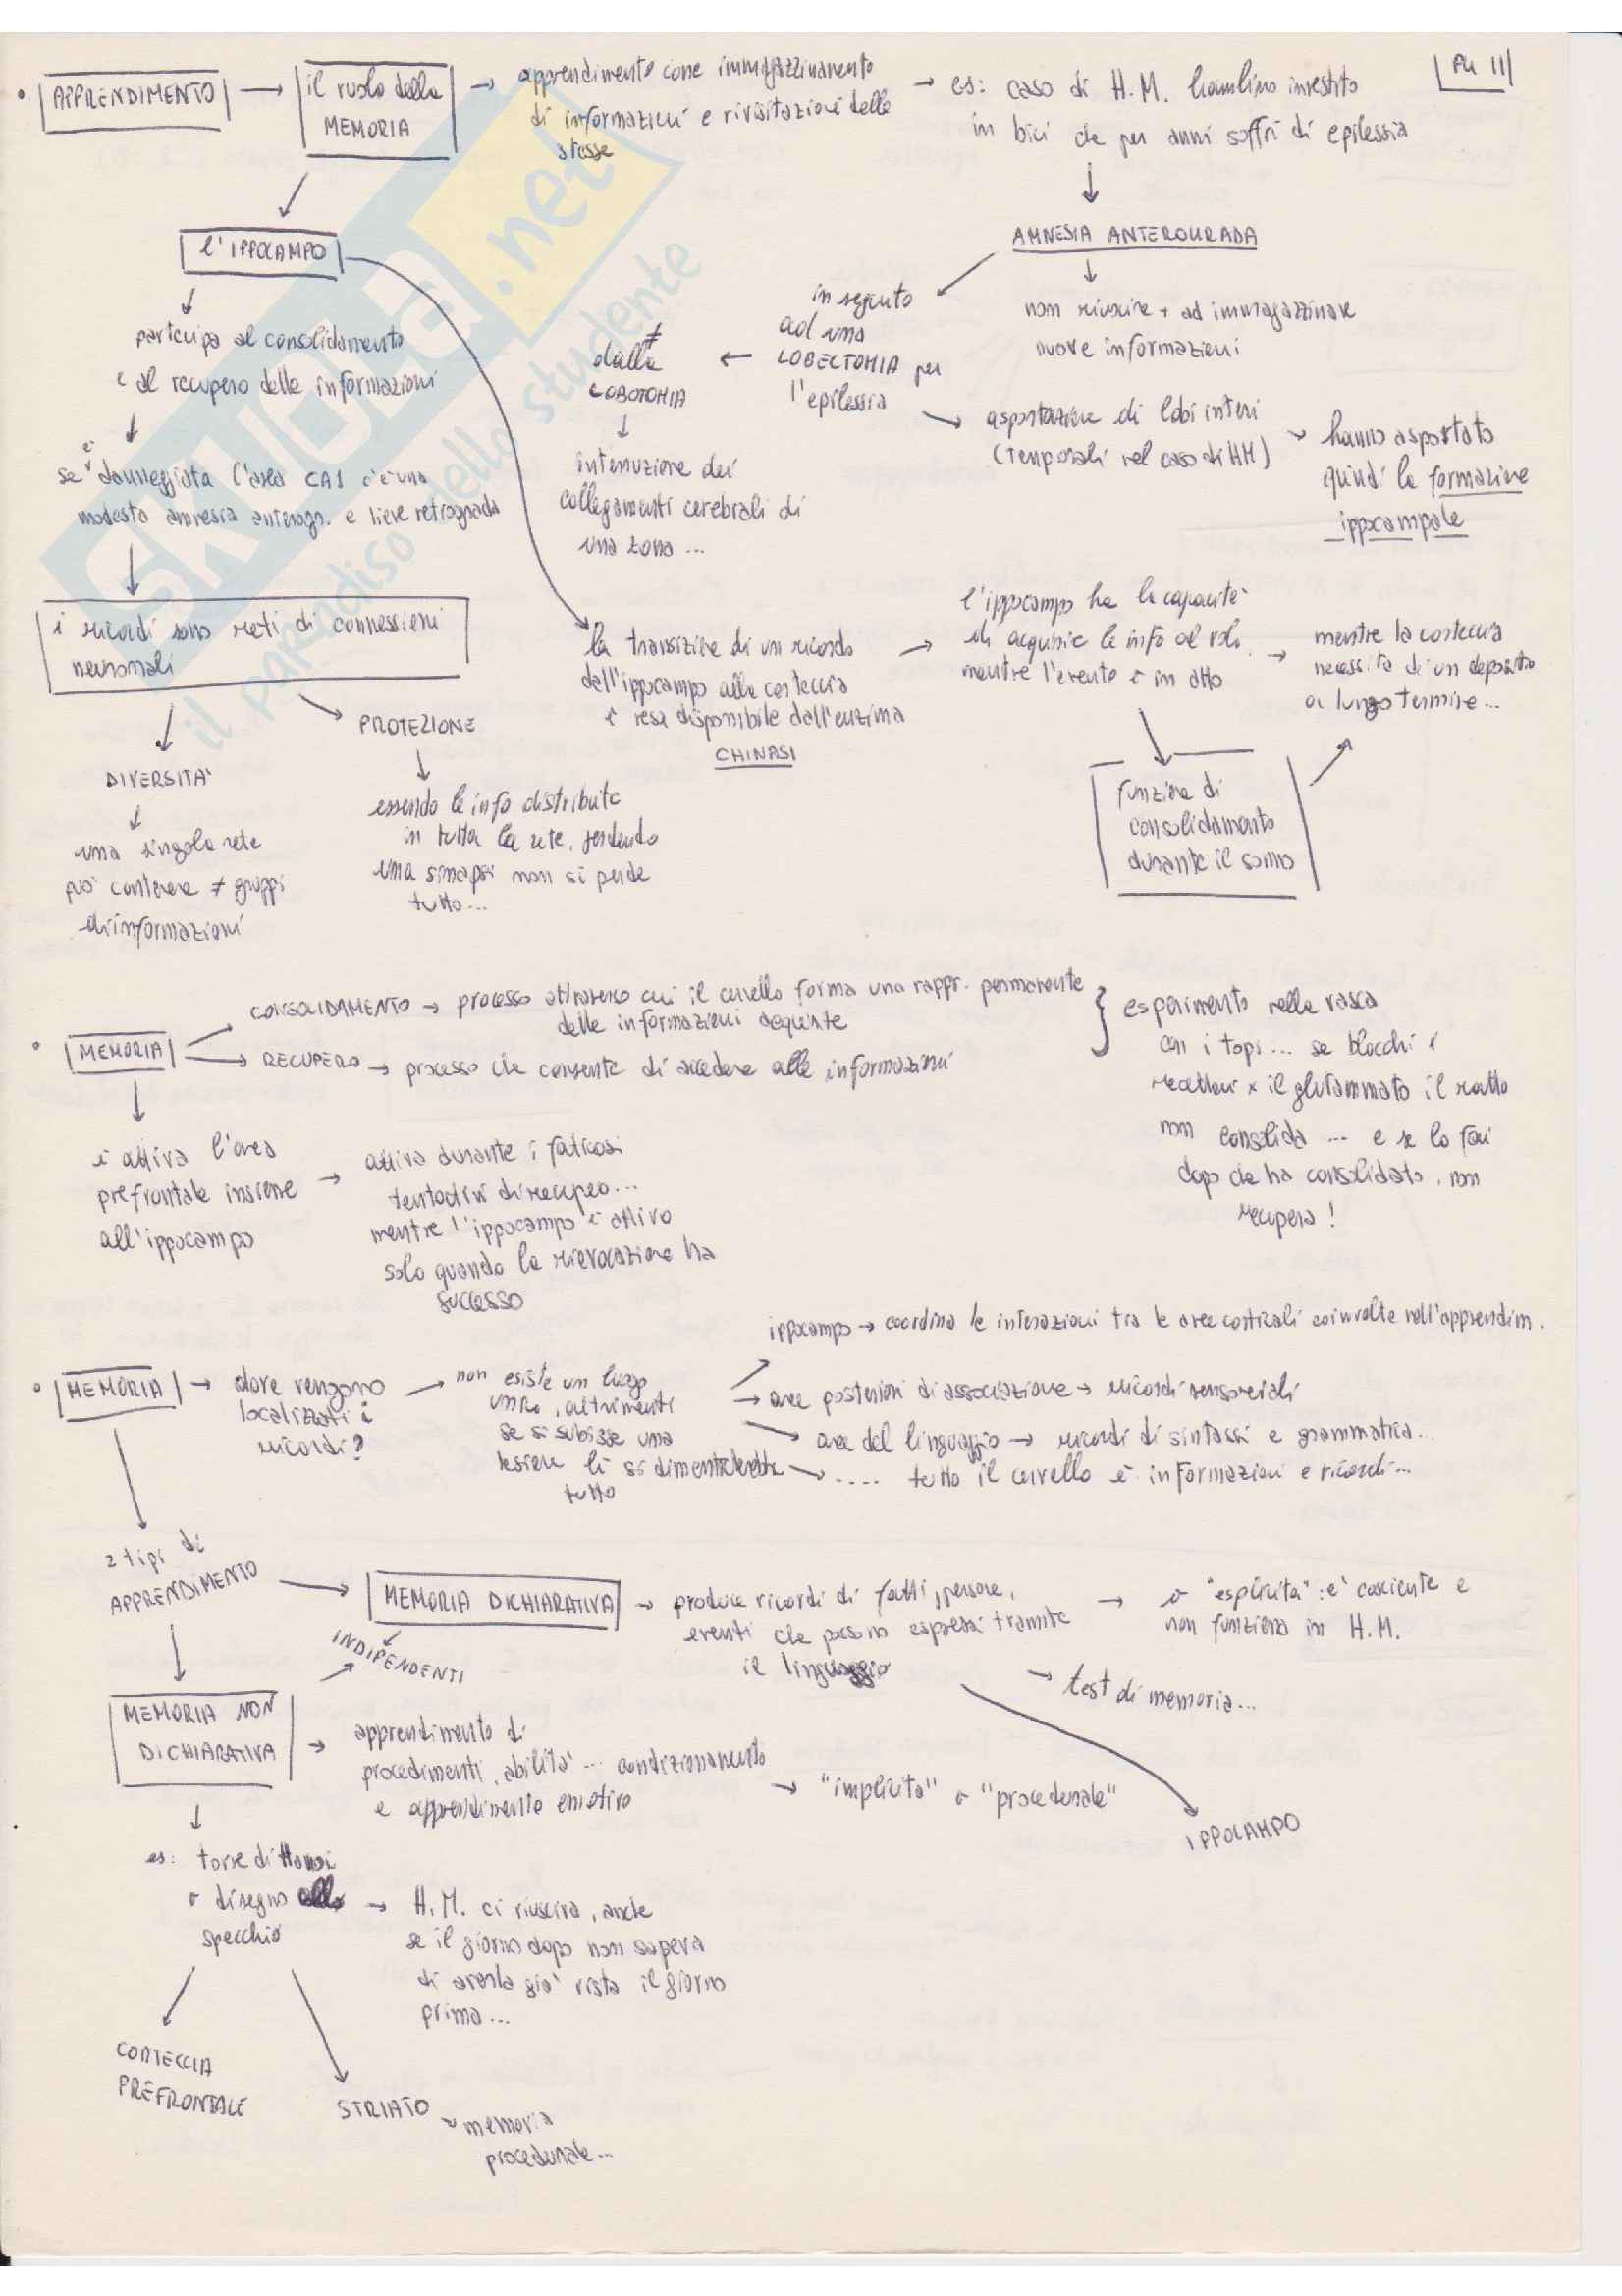 PU 11
• APPRENDIMENTO → il ruolo della
MEMORIA
→ apprendimento come immagazzinamento
di informazioni e rivisitazioni delle
stesse
→ es: caso di H.M. bambino investito
in bici che per anni soffrì di epilessia
↓
AMNESIA ANTEROGRADA
↓
non riuscire + ad immagazzinare
nuove informazioni
in seguito
ad una
LOBECTOMIA per
l'epilessia
← ≠
dalla
LOBOTOMIA
↓
interruzione dei
collegamenti cerebrali di
una zona ...
→ asportazione di lobi interi
(temporali nel caso di HM)
→ hanno asportato
quindi la formazione
ippocampale
l'IPPOCAMPO
↓
partecipa al consolidamento
e al recupero delle informazioni
↓
se è danneggiata l'area CA1 c'è una
modesta amnesia anterogr. e lieve retrograda
↓
i ricordi sono reti di connessioni
neuronali
↓
DIVERSITA'
↓
una singola rete
può contenere ≠ gruppi
di informazioni
→ PROTEZIONE
↓
essendo le info distribuite
in tutta la rete, perdendo
una sinapsi non si perde
tutto...
la transizione di un ricordo
dall'ippocampo alla corteccia
è resa disponibile dall'enzima
CHINASI
→ l'ippocampo ha la capacità
di acquisire le info al volo
mentre l'evento è in atto
→ mentre la corteccia
necessita di un deposito
a lungo termine...
funzione di
consolidamento
durante il sonno
• MEMORIA
→ CONSOLIDAMENTO → processo attraverso cui il cervello forma una rappr. permanente
delle informazioni acquisite
→ RECUPERO → processo che consente di accedere alle informazioni
} esperimento nella vasca
con i topi... se blocchi i
recettori x il glutammato il ratto
non consolida ... e se lo fai
dopo che ha consolidato, non
recupera!
↓
è attiva l'area
prefrontale insieme
all'ippocampo
→ attiva durante i faticosi
tentativi di recupero...
mentre l'ippocampo è attivo
solo quando la rievocazione ha
successo
• MEMORIA → dove vengono
localizzati i
ricordi?
→ non esiste un luogo
unico, altrimenti
se si subisse una
lesione lì si dimenticherebbe
tutto
ippocampo → coordina le interazioni tra le aree corticali coinvolte nell'apprendim.
→ aree posteriori di associazione → ricordi sensoriali
→ area del linguaggio → ricordi di sintassi e grammatica...
→ .... tutto il cervello è informazioni e ricordi...
2 tipi di
APPRENDIMENTO
→ MEMORIA DICHIARATIVA → produce ricordi di fatti, persone,
eventi che possono espressi tramite
il linguaggio
→ o "esplicita": è cosciente e
non funziona in H.M.
→ test di memoria...
IPPOCAMPO
INDIPENDENTI
MEMORIA NON
DICHIARATIVA
→ apprendimento di
procedimenti, abilità ... condizionamento
e apprendimento emotivo
→ "implicita" o "procedurale"
↓
es: torre di Hanoi
o disegno allo
specchio
→ H.M. ci riusciva, anche
se il giorno dopo non sapeva
di averla già vista il giorno
prima...
CORTECCIA
PREFRONTALE
STRIATO
→ memoria
procedurale...
SKUOLA.net
il paradiso dello studente